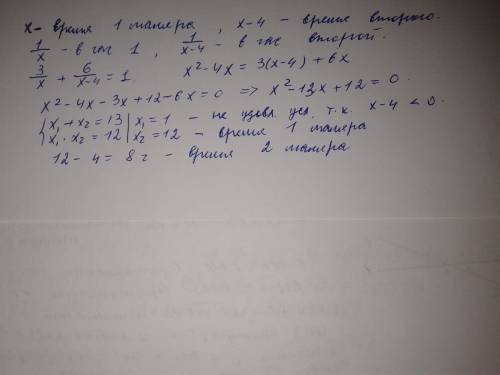 x - время 1 маляра, x-4 - время второго.
1/x - в час 1, 1/(x-4) - в час второй.
3/x + 6/(x-4) = 1. x²-4x = 3(x-4) + 6x
x²-4x-3x+12-6x=0 => x²-13x+12=0.
{x₁+x₂=13 | x₁=1 - не удовл. усл, т.к. x-4 < 0.
{x₁·x₂=12 | x₂=12 - время 1 маляра
12-4=8 г - время 2 маляра